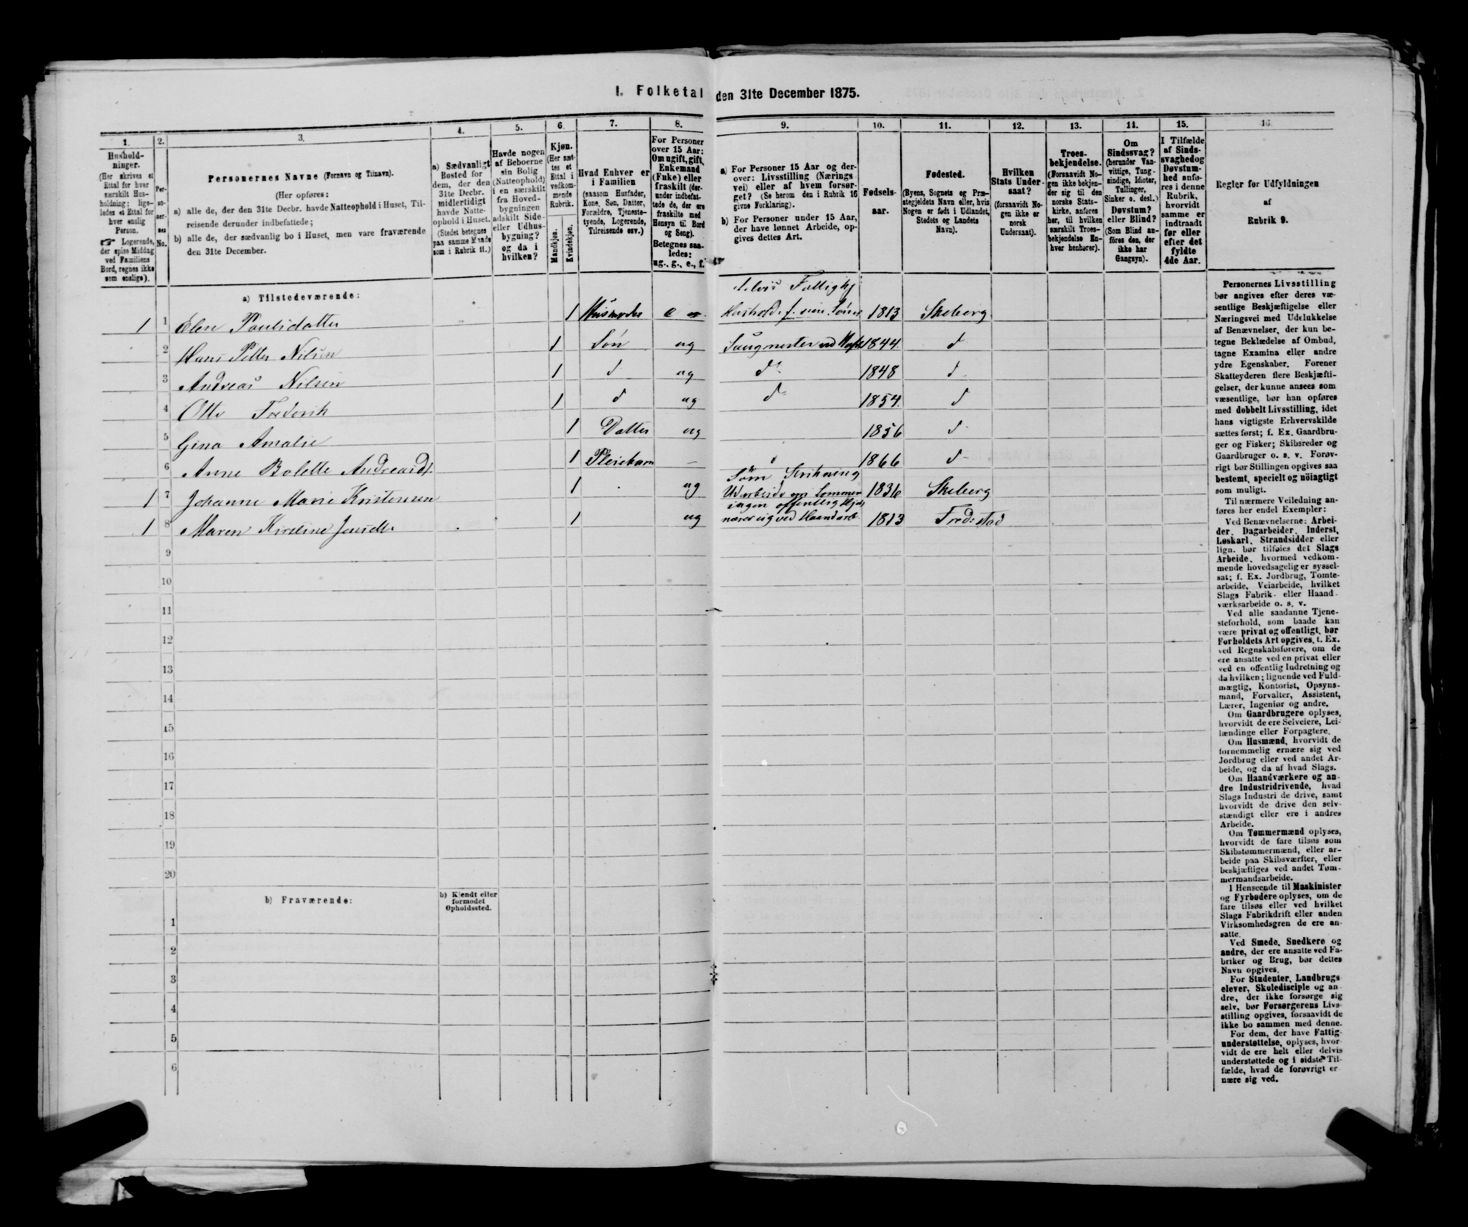 I. Folketal den 31te December 1875.
1. 2. 3. 4. 5. 6. 7. 8. 9. 10. 11. 12. 13. 14. 15. 16.
Hushold-
ninger.
(Her skrives et
Ettal for hver
særskilt Hus-
holdning; lige-
ledes et Ettal for
hver enslig
Person.
Logerende,
der spise Middag
ved Familiens
Bord, regnes ikke
som enslige).
Per-
so-
ner-
nes
No.
Personernes Navne (Fornavn og Tilnavn).
(Her opføres:
a) alle de, der den 31te Decbr. havde Natteophold i Huset, Til-
reisende derunder indbefattede;
b) alle de, der sædvanlig bo i Huset, men vare fraværende
den 31te December.
a) Sædvanligt
Bosted for
dem, der den
31te Decbr.
midlertidigt
havde Natte-
ophold i Huset.
(Stedet betegnes
paa samme Maade
som i Rubrik 11.)
Havde nogen
af Beboerne
sin Bolig
(Natteophold)
i en særskilt
fra Hoved-
bygningen
adskilt Side-
eller Udhus-
bygning?
og da i
hvilken?
Kjøn.
(Her sæt-
tes et
Ettal i
vedkom-
mende
Rubrik.
Mandkjøn.
Kvindekjøn.
Hvad Enhver er
i Familien
(saasom Husfader,
Kone, Søn, Datter,
Forældre, Tjeneste-
tyende, Logerende,
Tilreisende osv.)
For Personer
over 15 Aar:
Om ugift, gift,
Enkemand
(Enke) eller
fraskilt (der-
under indbefat-
tede de, der ere
fraskilte med
Hensyn til Bord
og Seng).
Betegnes saa-
ledes:
ug., g., e., f.
a) For Personer 15 Aar og der-
over: Livsstilling (Nærings-
vei) eller af hvem forsør-
get? (Se herom den i Rubrik 16
givne Forklaring).
b) For Personer under 15 Aar,
der have lønnet Arbeide, op-
gives dettes Art.
Fødsels-
aar.
Fødested.
(Byens, Sognets og Præ-
stegjeldets Navn eller, hvis
Nogen er født i Udlandet,
Stedets og Landets
Navn).
Hvilken
Stats Under-
saat?
(forsaavidt No-
gen ikke er
norsk
Undersaat).
Troes-
bekjendelse.
(Forsaavidt No-
gen ikke bekjen-
der sig til den
norske Stats-
kirke, anføres
her, til hvilken
særskilt Troes-
bekjendelse En-
hver henhører).
Om
Sindssvag?
(herunder Van-
vittige, Tung-
sindige, Idioter,
Tullinger,
Sinker o. desl.)
Døvstum?
eller Blind?
(Som Blind an-
føres den, der
ikke har
Gangsyn).
I Tilfælde
af Sinds-
svaghed og
Døvstum-
hed anfø-
res i denne
Rubrik,
hvorvidt
samme er
indtraadt
før eller
efter det
fyldte
4de Aar.
Regler for Udfyldningen
af
Rubrik 9.
a) Tilstedeværende:
1 1 Elen Paulsdatter 1 Husmoder e delvis Fattighj Husholds f. sine Sønner 1813 Skeberg
2 Hans Petter Nilsen 1 Søn ug 1844 d
3 Andreas Nilsen 1 d ug do 1848 d
4 Otto Frederik 1 d ug do 1854 d
5 Gina Amalie 1 Datter ug 1856 d
6 Anne Bolette Andreasd. 1 Pleiebarn – d 1866 d
1 7 Johanne Marie Kristensen 1 ug Søm Strikning Udarbeide om Sommer 1836 Skeberg
1 8 Maren Kirstine Jensdtr 1 ug ingen offentlig Hj nærer sig ved Haandarb 1813 Fredrstad
9
10
11
12
13
14
15
16
17
18
19
20
b) Fraværende:
b) Kjendt eller
formodet
Opholdssted.
1
2
3
4
5
6
Personernes Livsstilling
bør angives efter deres væ-
sentlige Beskjæftigelse eller
Næringsvei med Udelukkelse
af Benævnelser, der kun be-
tegne Beklædelse af Ombud,
tagne Examina eller andre
ydre Egenskaber. Forener
Skatteyderen flere Beskjæfti-
gelser, der kunne ansees som
væsentlige, bør han opføres
med dobbelt Livsstilling, idet
hans vigtigste Erhvervskilde
sættes først; f. Ex. Gaardbru-
ger og Fisker; Skibsreder og
Gaardbruger o. s. v. Forøv-
rigt bør Stillingen opgives saa
bestemt, specielt og nöiagtigt
som muligt.
Til nærmere Veiledning an-
føres her endel Exempler:
Ved Benævnelserne: Arbei-
der, Dagarbeider, Inderst,
Løskarl, Strandsidder eller
lign. bør tilføies det Slags
Arbeide, hvormed vedkom-
mende hovedsagelig er syssel-
sat; f. Ex. Jordbrug, Tomte-
arbeide, Veiarbeide, hvilket
Slags Fabrik- eller Haand-
værksarbeide o. s. v.
Ved alle saadanne Tjene-
steforhold, som baade kan
være privat og offentligt, bør
Forholdets Art opgives, t. Ex.
ved Regnskabsførere, om de
ere ansatte ved en privat eller
ved en offentlig Indretning og
da hvilken; lignende ved Fuld-
mægtig, Kontorist, Opsyns-
mand, Forvalter, Assistent,
Lærer, Ingeniør og andre.
Om Gaardbrugere oplyses,
hvorvidt de ere Selveiere, Lei-
lændinge eller Forpagtere.
Om Husmænd, hvorvidt de
fornemmelig ernære sig ved
Jordbrug eller ved andet Ar-
beide, og da af hvad Slags.
Om Haandværkere og an-
dre Industridrivende, hvad
Slags Industri de drive, samt
hvorvidt de drive den selv-
stændigt eller ere i andres
Arbeide.
Om Tømmermænd oplyses,
hvorvidt de fare tilsøs som
Skibstømmermænd, eller ar-
beide paa Skibsværfter, eller
beskjæftiges ved andet Tøm-
mermandsarbeide.
I Henseende til Maskinister
og Fyrbødere oplyses, om de
fare tilsøs eller ved hvilket
Slags Fabrikdrift eller anden
Virksomhedsgren de ere an-
satte.
Ved Smede, Snedkere og
andre, der ere ansatte ved Fa-
briker og Brug, bør dettes
Navn opgives.
For Studenter, Landbrugs-
elever, Skoledisciple og an-
dre, der ikke forsørge sig
selv, bør Forsørgerens Livs-
stilling opgives, forsaavidt de
ikke bo sammen med denne.
For dem, der have Fattig-
understøttelse, oplyses, hvor-
vidt de ere helt eller delvis
understøttede og i sidste Til-
fælde, hvad de forøvrigt er-
nære sig ved.